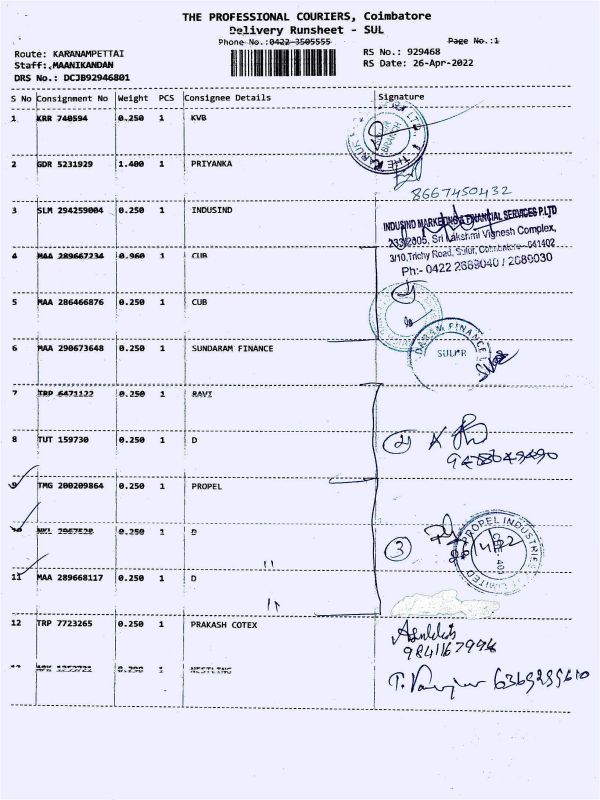 THE PROFESSIONAL COURIERS, Coimbatore
Delivery Runsheet - SUL
Phone No.:0422-3505555 Page No.:1
Route: KARANAMPETTAI RS No.: 929468
Staff: MAANIKANDAN RS Date: 26-Apr-2022
DRS No.: DCJB92946801
S No Consignment No Weight PCS Consignee Details Signature
1 KRR 740594 0.250 1 KVB
2 GDR 5231929 1.400 1 PRIYANKA
8667450432
3 SLM 294259004 0.250 1 INDUSIND
INDUSIND MARKETING & FINANCIAL SERVICES P.LTD
233/2005, Sri Lakshmi Vignesh Complex,
3/10,Trichy Road, Sulur, Coimbatore-641402
Ph:- 0422 2689040 / 2689030
4 MAA 289667234 0.960 1 CUB
5 MAA 286466876 0.250 1 CUB
6 MAA 290673648 0.250 1 SUNDARAM FINANCE
SULUR
7 TRP 6471122 0.250 1 RAVI
8 TUT 159730 0.250 1 D
2
9 TMG 200209864 0.250 1 PROPEL
10 NKL 2967528 0.250 1 D
3 PROPEL INDUSTRIES
11 MAA 289668117 0.250 1 D
12 TRP 7723265 0.250 1 PRAKASH COTEX
9841167994
1 NESTLING